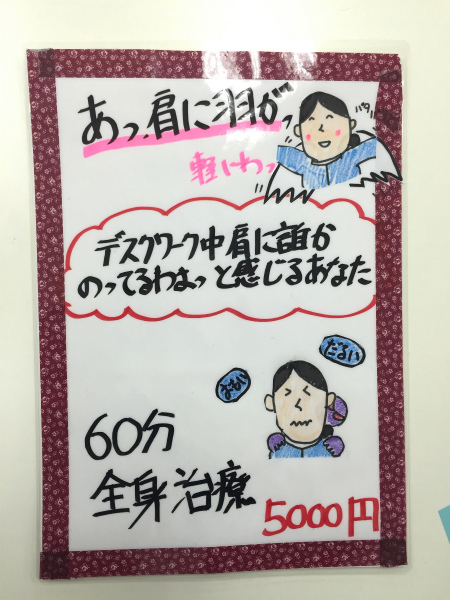 あっ、肩に羽がっ
軽いわっ
バタ
デスクワーク中肩に誰か
のってるわよっと感じるあなた
だるい
60分
全身治療
5000円